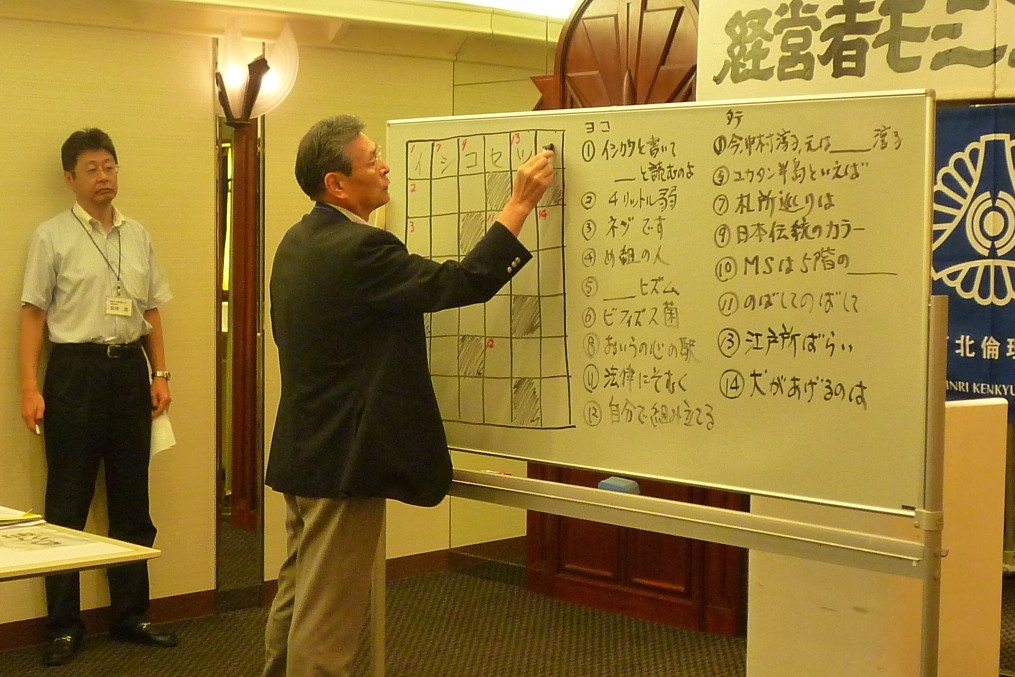 経営者モ
ヨコ
① イシクタと書いて
____と読むのよ
② 4リットル弱
③ ネジです
④ め組の人
⑤ ____ヒズム
⑥ ビフィズス菌
⑧ あいうの心の駅
⑪ 法律にそむく
⑫ 自分で組み立てる
タテ
① 今中村淳ろ,えは____淳ろ
⑤ ユカタン半島といえば
⑦ 札所巡りは
⑨ 日本伝統のカラー
⑩ MSは5階の____
⑪ のばしてのばして
⑬ 江戸所ばらい
⑭ 犬があげるのは
イ シ コ セ ツ
1 7 9 13
2
3
14
12
北倫理
INRI KENKYU